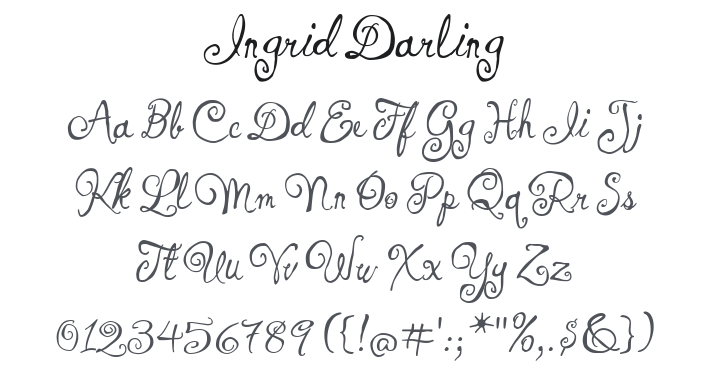 Ingrid Darling
Aa Bb Cc Dd Ee Ff Gg Hh Ii Jj
Kk Ll Mm Nn Oo Pp Qq Rr Ss
Tt Uu Vv Ww Xx Yy Zz
0123456789({!@#':;*"%,.$&})